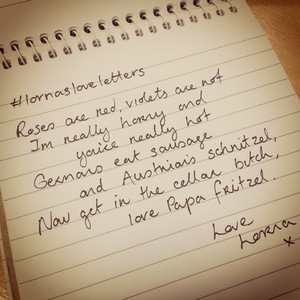 #lornasloveletters
Roses are red, violets are not
I'm really horny and
you're really hot
Germans eat sausage
and Austrians schnitzel,
Now get in the cellar bitch,
love Papa Fritzel.
Love
Lorna
x